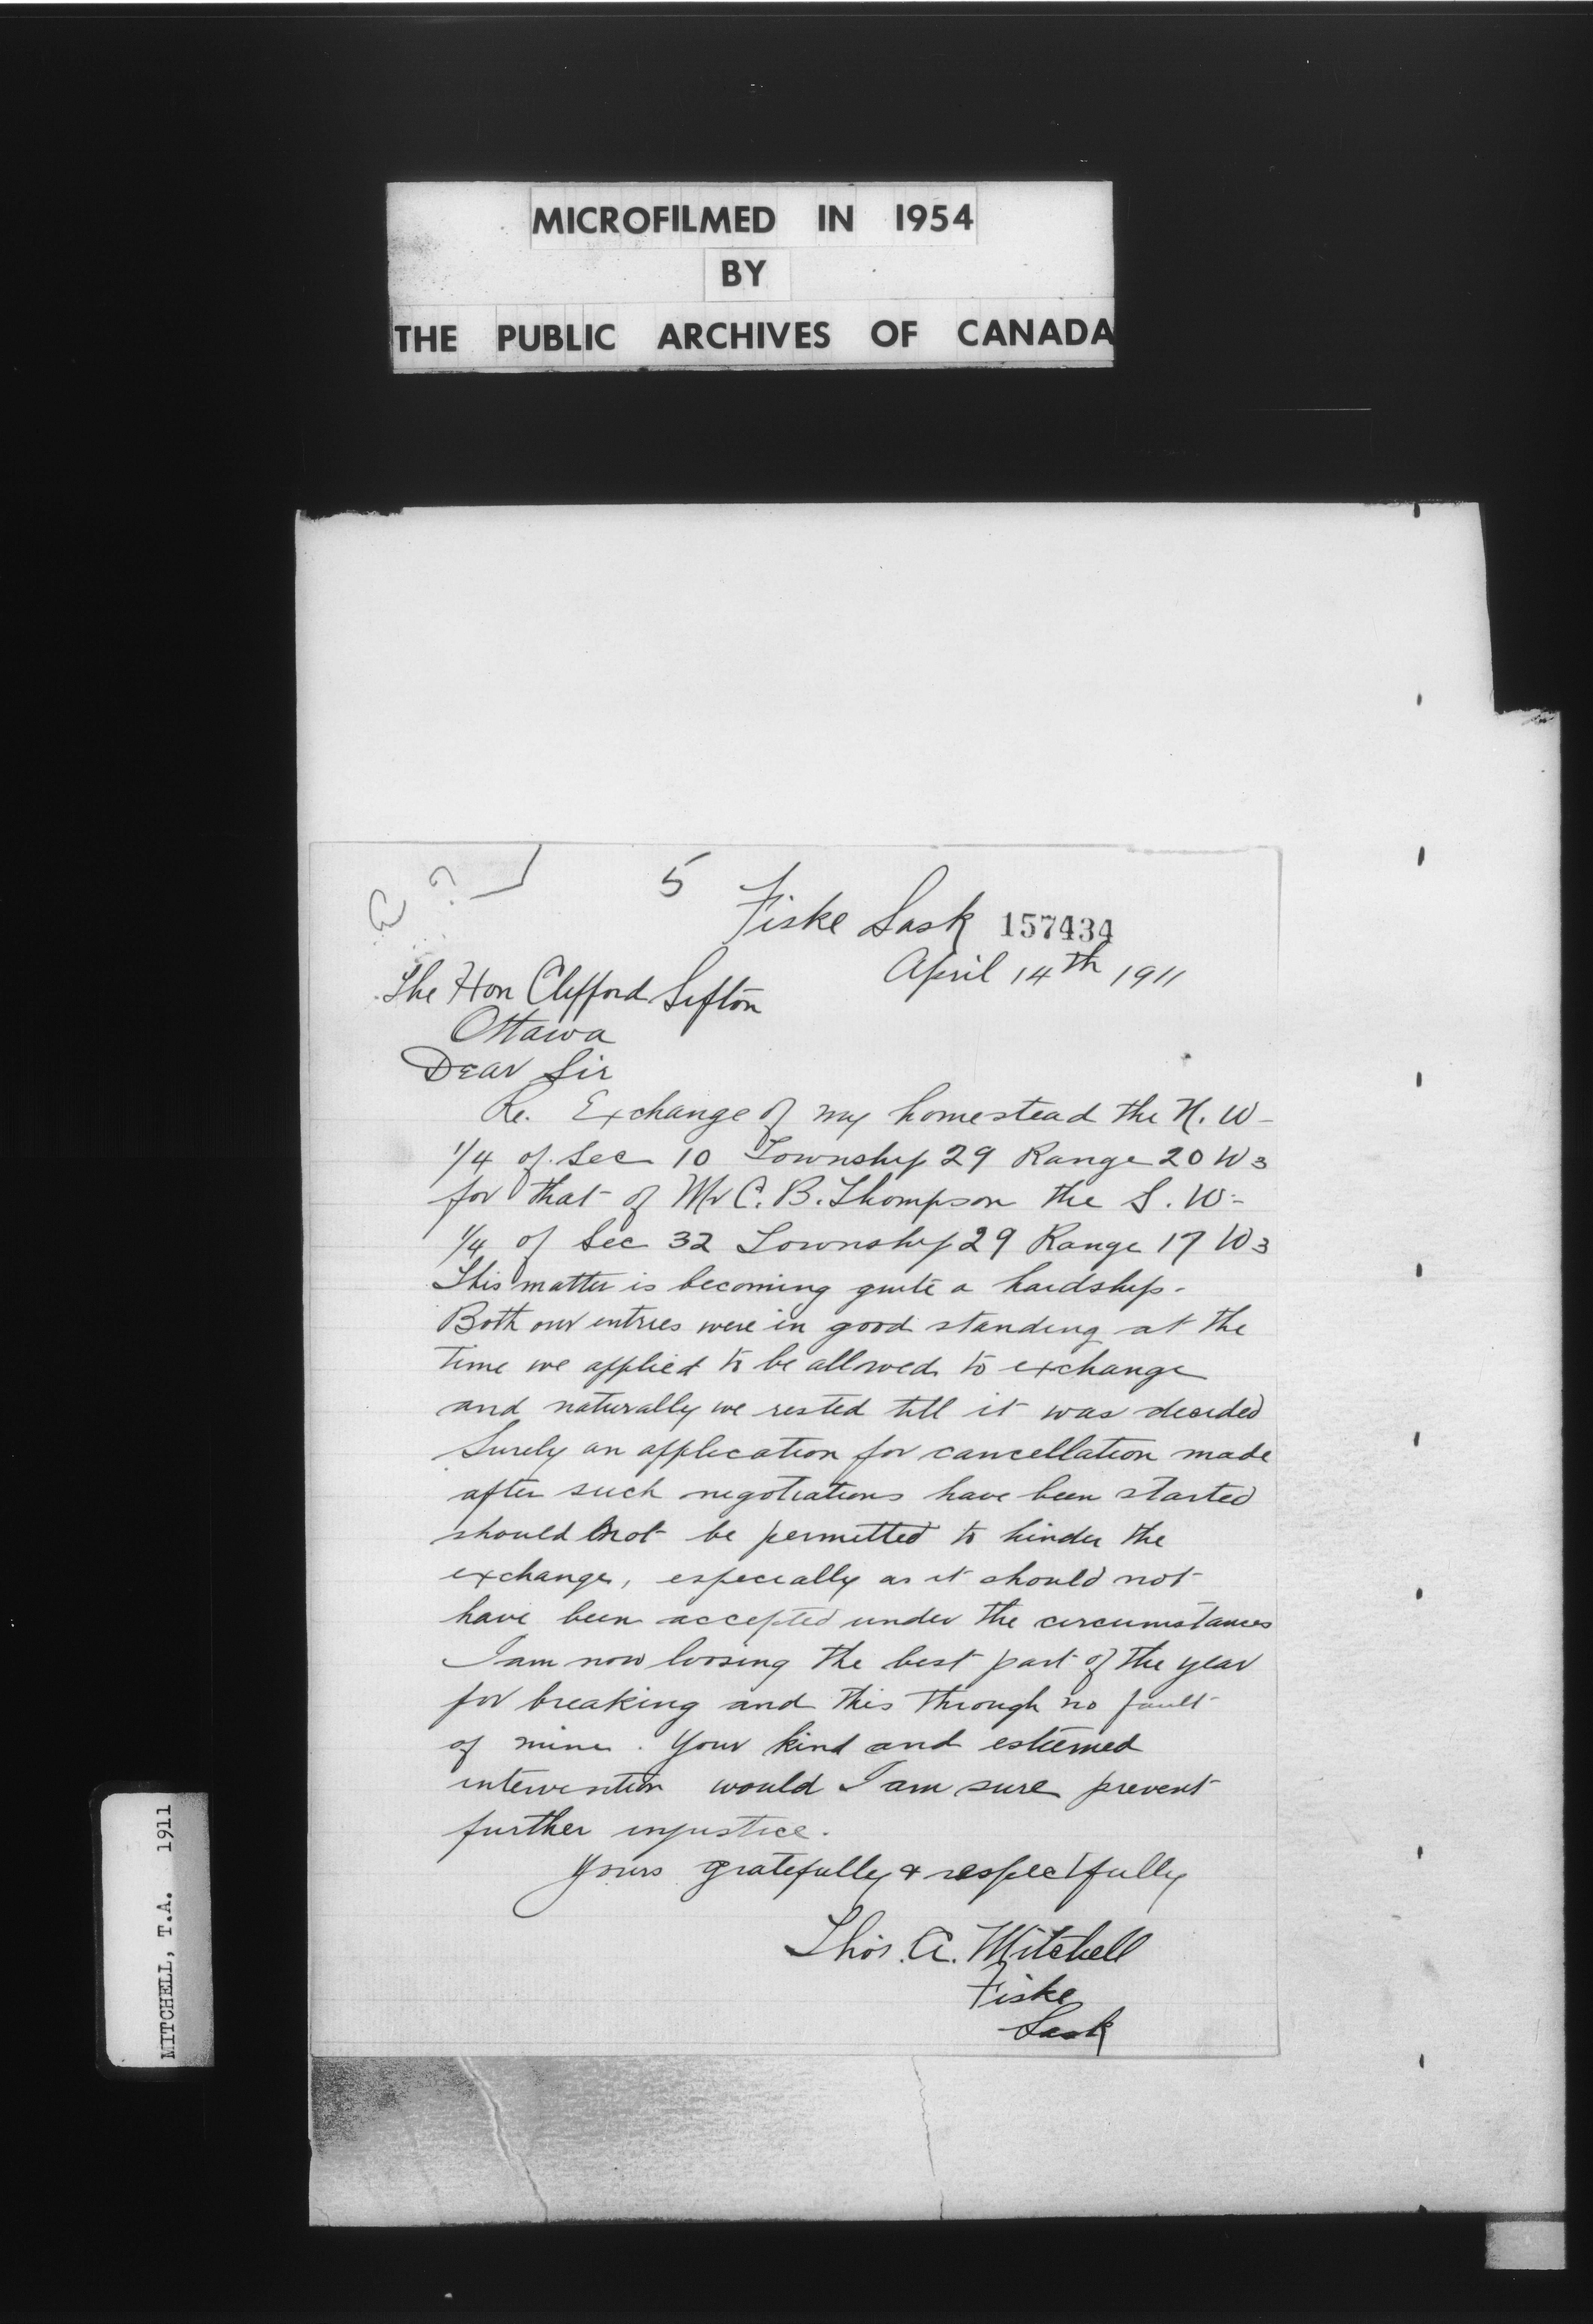 MICROFILMED IN 1954
BY
THE PUBLIC ARCHIVES OF CANADA
5
Fiske Sask 157434
April 14th 1911
The Hon Clifford Sifton
Ottawa
Dear Sir
Re. Exchange of my homestead the N. W-
1/4 of Sec 10 Township 29 Range 20 W3
for that of Mr C. B. Thompson the S. W-
1/4 of Sec 32 Township 29 Range 17 W3
This matter is becoming quite a hardship.
Both our entries were in good standing at the
time we applied to be allowed to exchange
and naturally we rested till it was decided
Surely an application for cancellation made
after such negotiations have been started
should not be permitted to hinder the
exchange, especially as it should not
have been accepted under the circumstances
I am now loosing the best part of the year
for breaking and this through no fault
of mine. Your kind and esteemed
intervention would I am sure prevent
further injustice.
Yours gratefully & respectfully
Thos. A. Mitchell
Fiske
Sask
MITCHELL, T.A. 1911